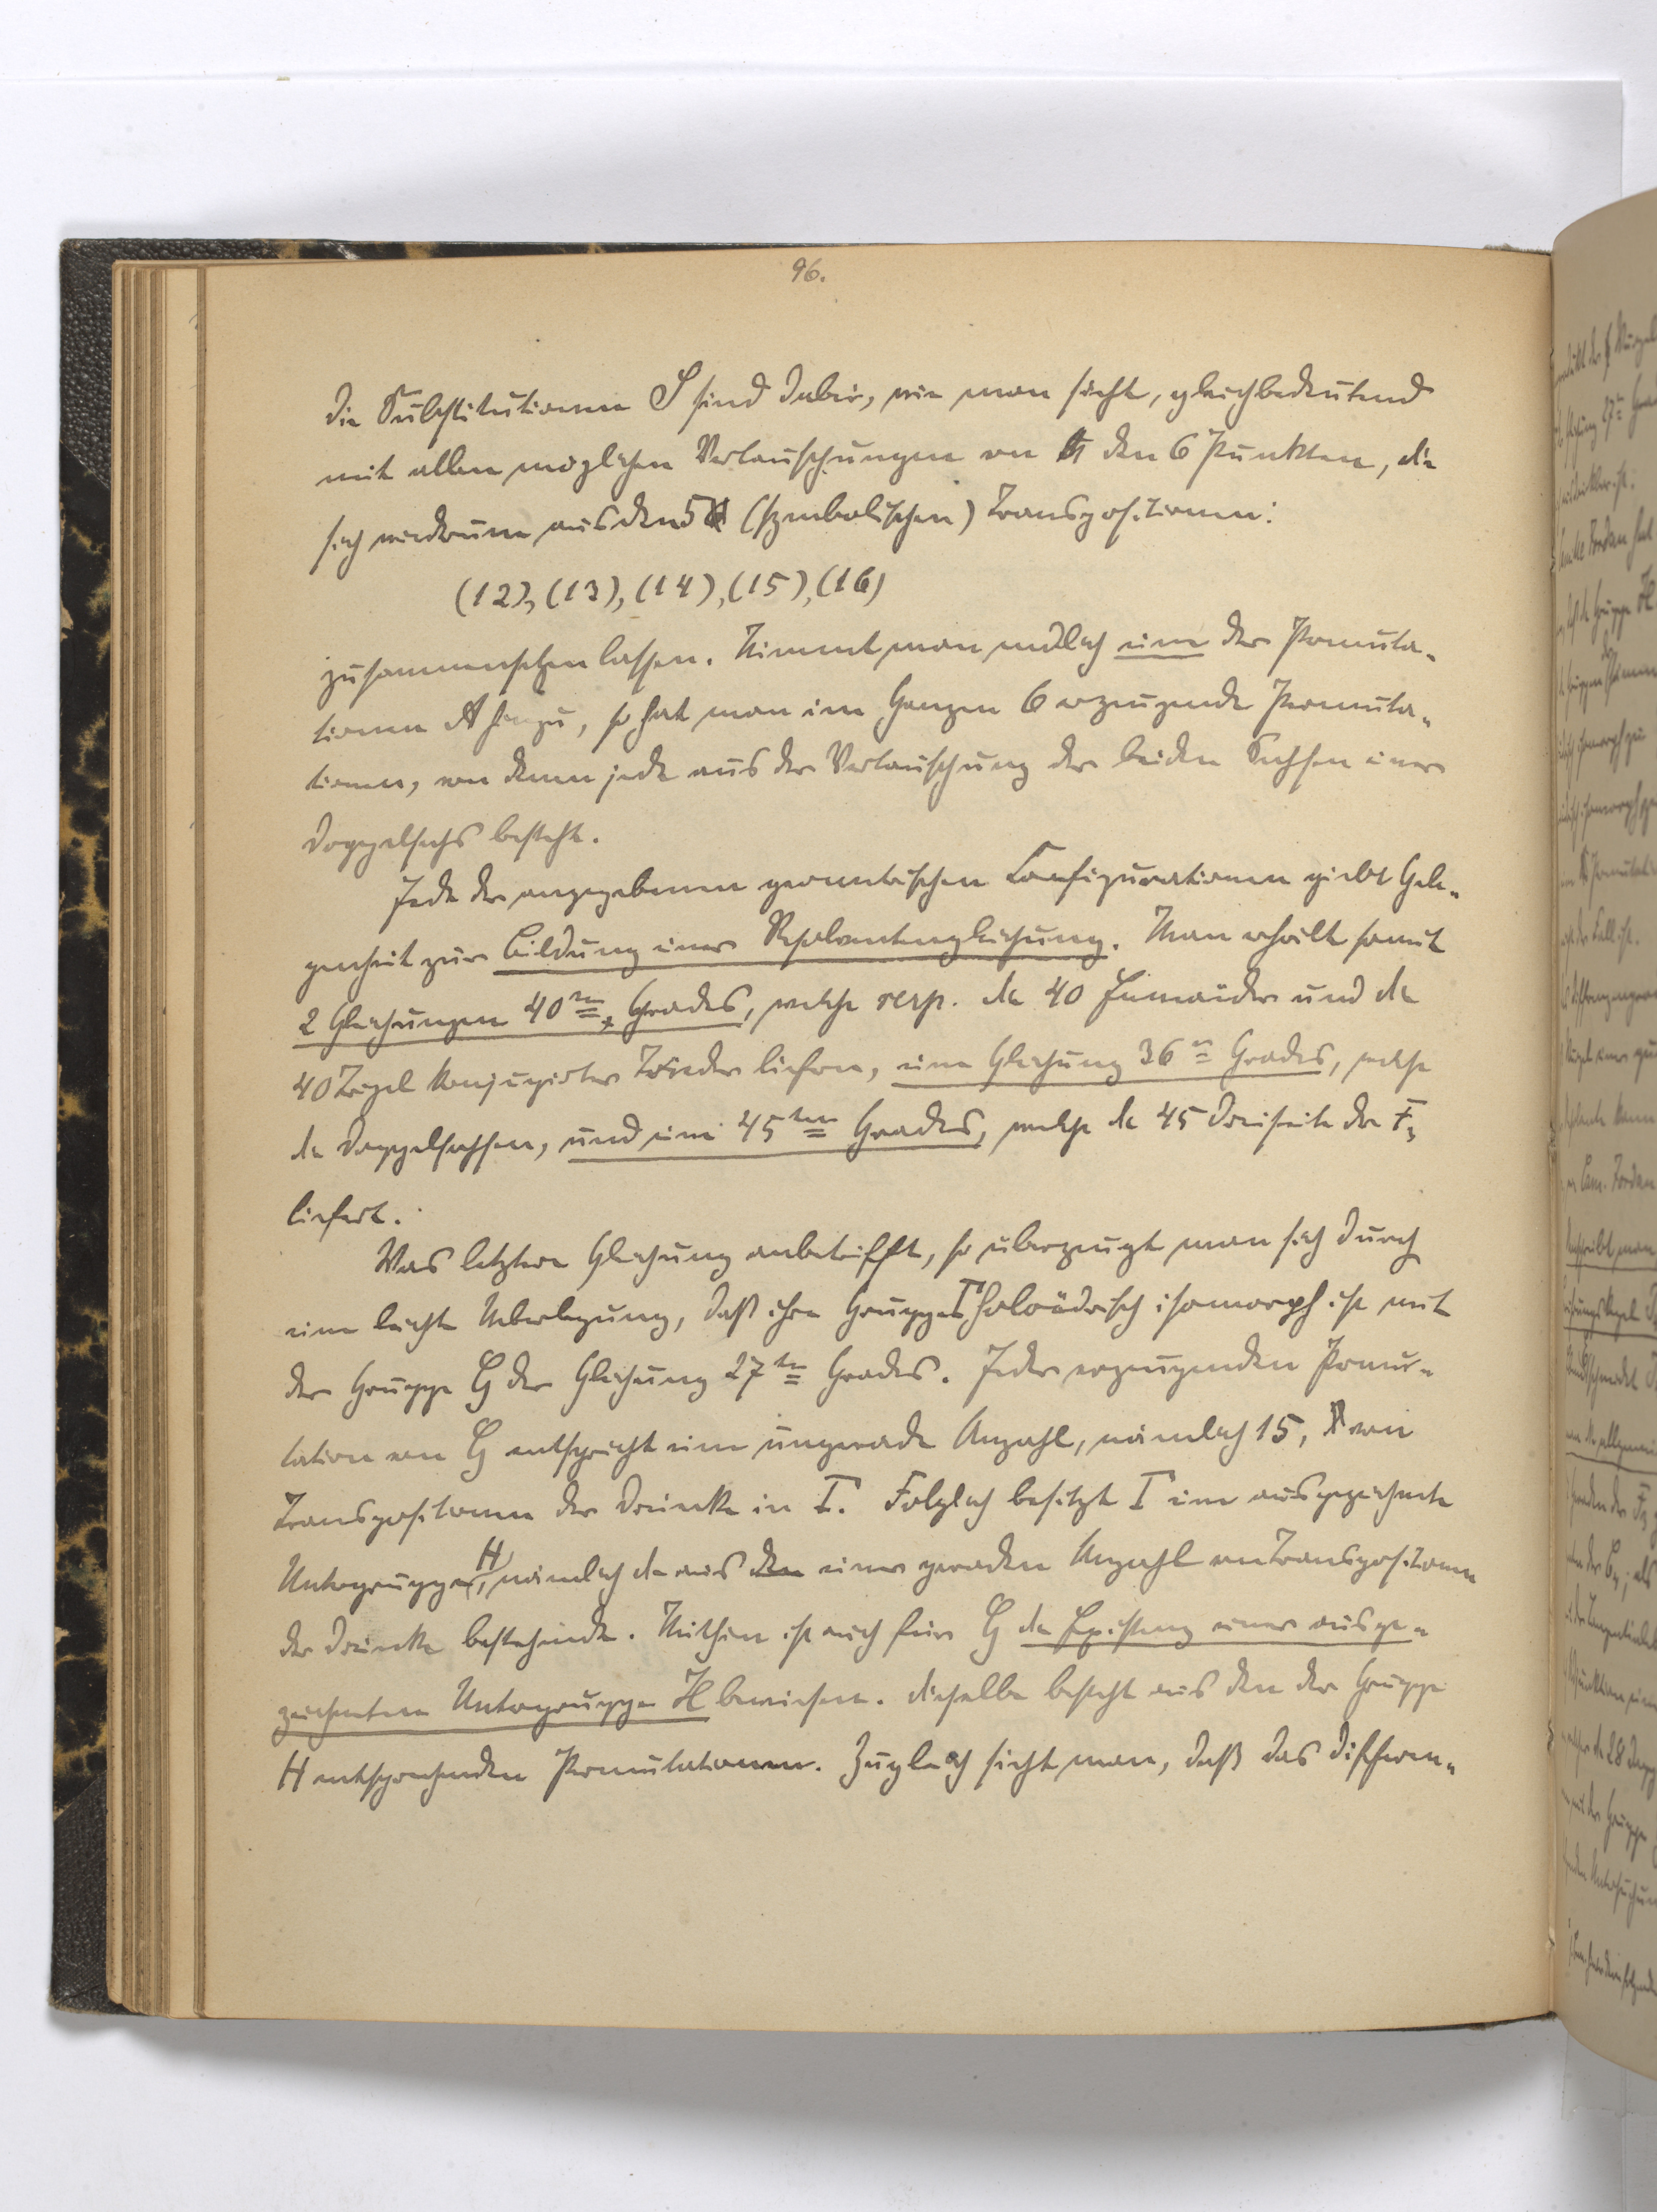 96.
Die Substitutionen S sind dabei, wie man sieht, gleichbedeutend
mit allen möglichen Vertauschungen von den 6 Punkten, die
sich wiederum aus den 5 (symbolischen) Transpositionen:
(12), (13), (14), (15), (16)
zusammensetzen lassen. Nimmt man endlich eine der Permuta-
tionen A hinzu, so hat man im Ganzen 6 erzeugende Permuta-
tionen, von denen jede aus der Vertauschung der beiden Sechsen einer
Doppelsechs besteht.
Jede der angegebenen geometrischen Configurationen giebt Gele-
genheit zur Bildung einer Resolventengleichung. Man erhält somit
2 Gleichungen 40ten Grades, welche resp. die 40 Enneaider und die
40 Tripel konjugirter Trieder liefern, eine Gleichung 36n Grades, welche
die Doppelsechsen, und eine 45ten Grades, welche die 45 Dreiseite der F3
liefert.
Was letztere Gleichung anbetrifft, so überzeugt man sich durch
eine leichte Ueberlegung, daß ihre Gruppe Γ holoëdrisch isomorph ist mit
der Gruppe G der Gleichung 27ten Grades. Jeder erzeugenden Permu-
tation von G entspricht eine ungerade Anzahl, nämlich 15, von
Transpositionen der Dreiecke in Γ. Folglich besitzt Γ eine ausgezeichnete
Untergruppe H, nämlich die aus einer geraden Anzahl von Transpositionen
der Dreiecke bestehende. Mithin ist auch für G die Existenz einer ausge-
zeichneten Untergruppe H bewiesen. Dieselbe besteht aus den der Gruppe
H entsprechenden Permutationen. Zugleich sieht man, daß das Differen-